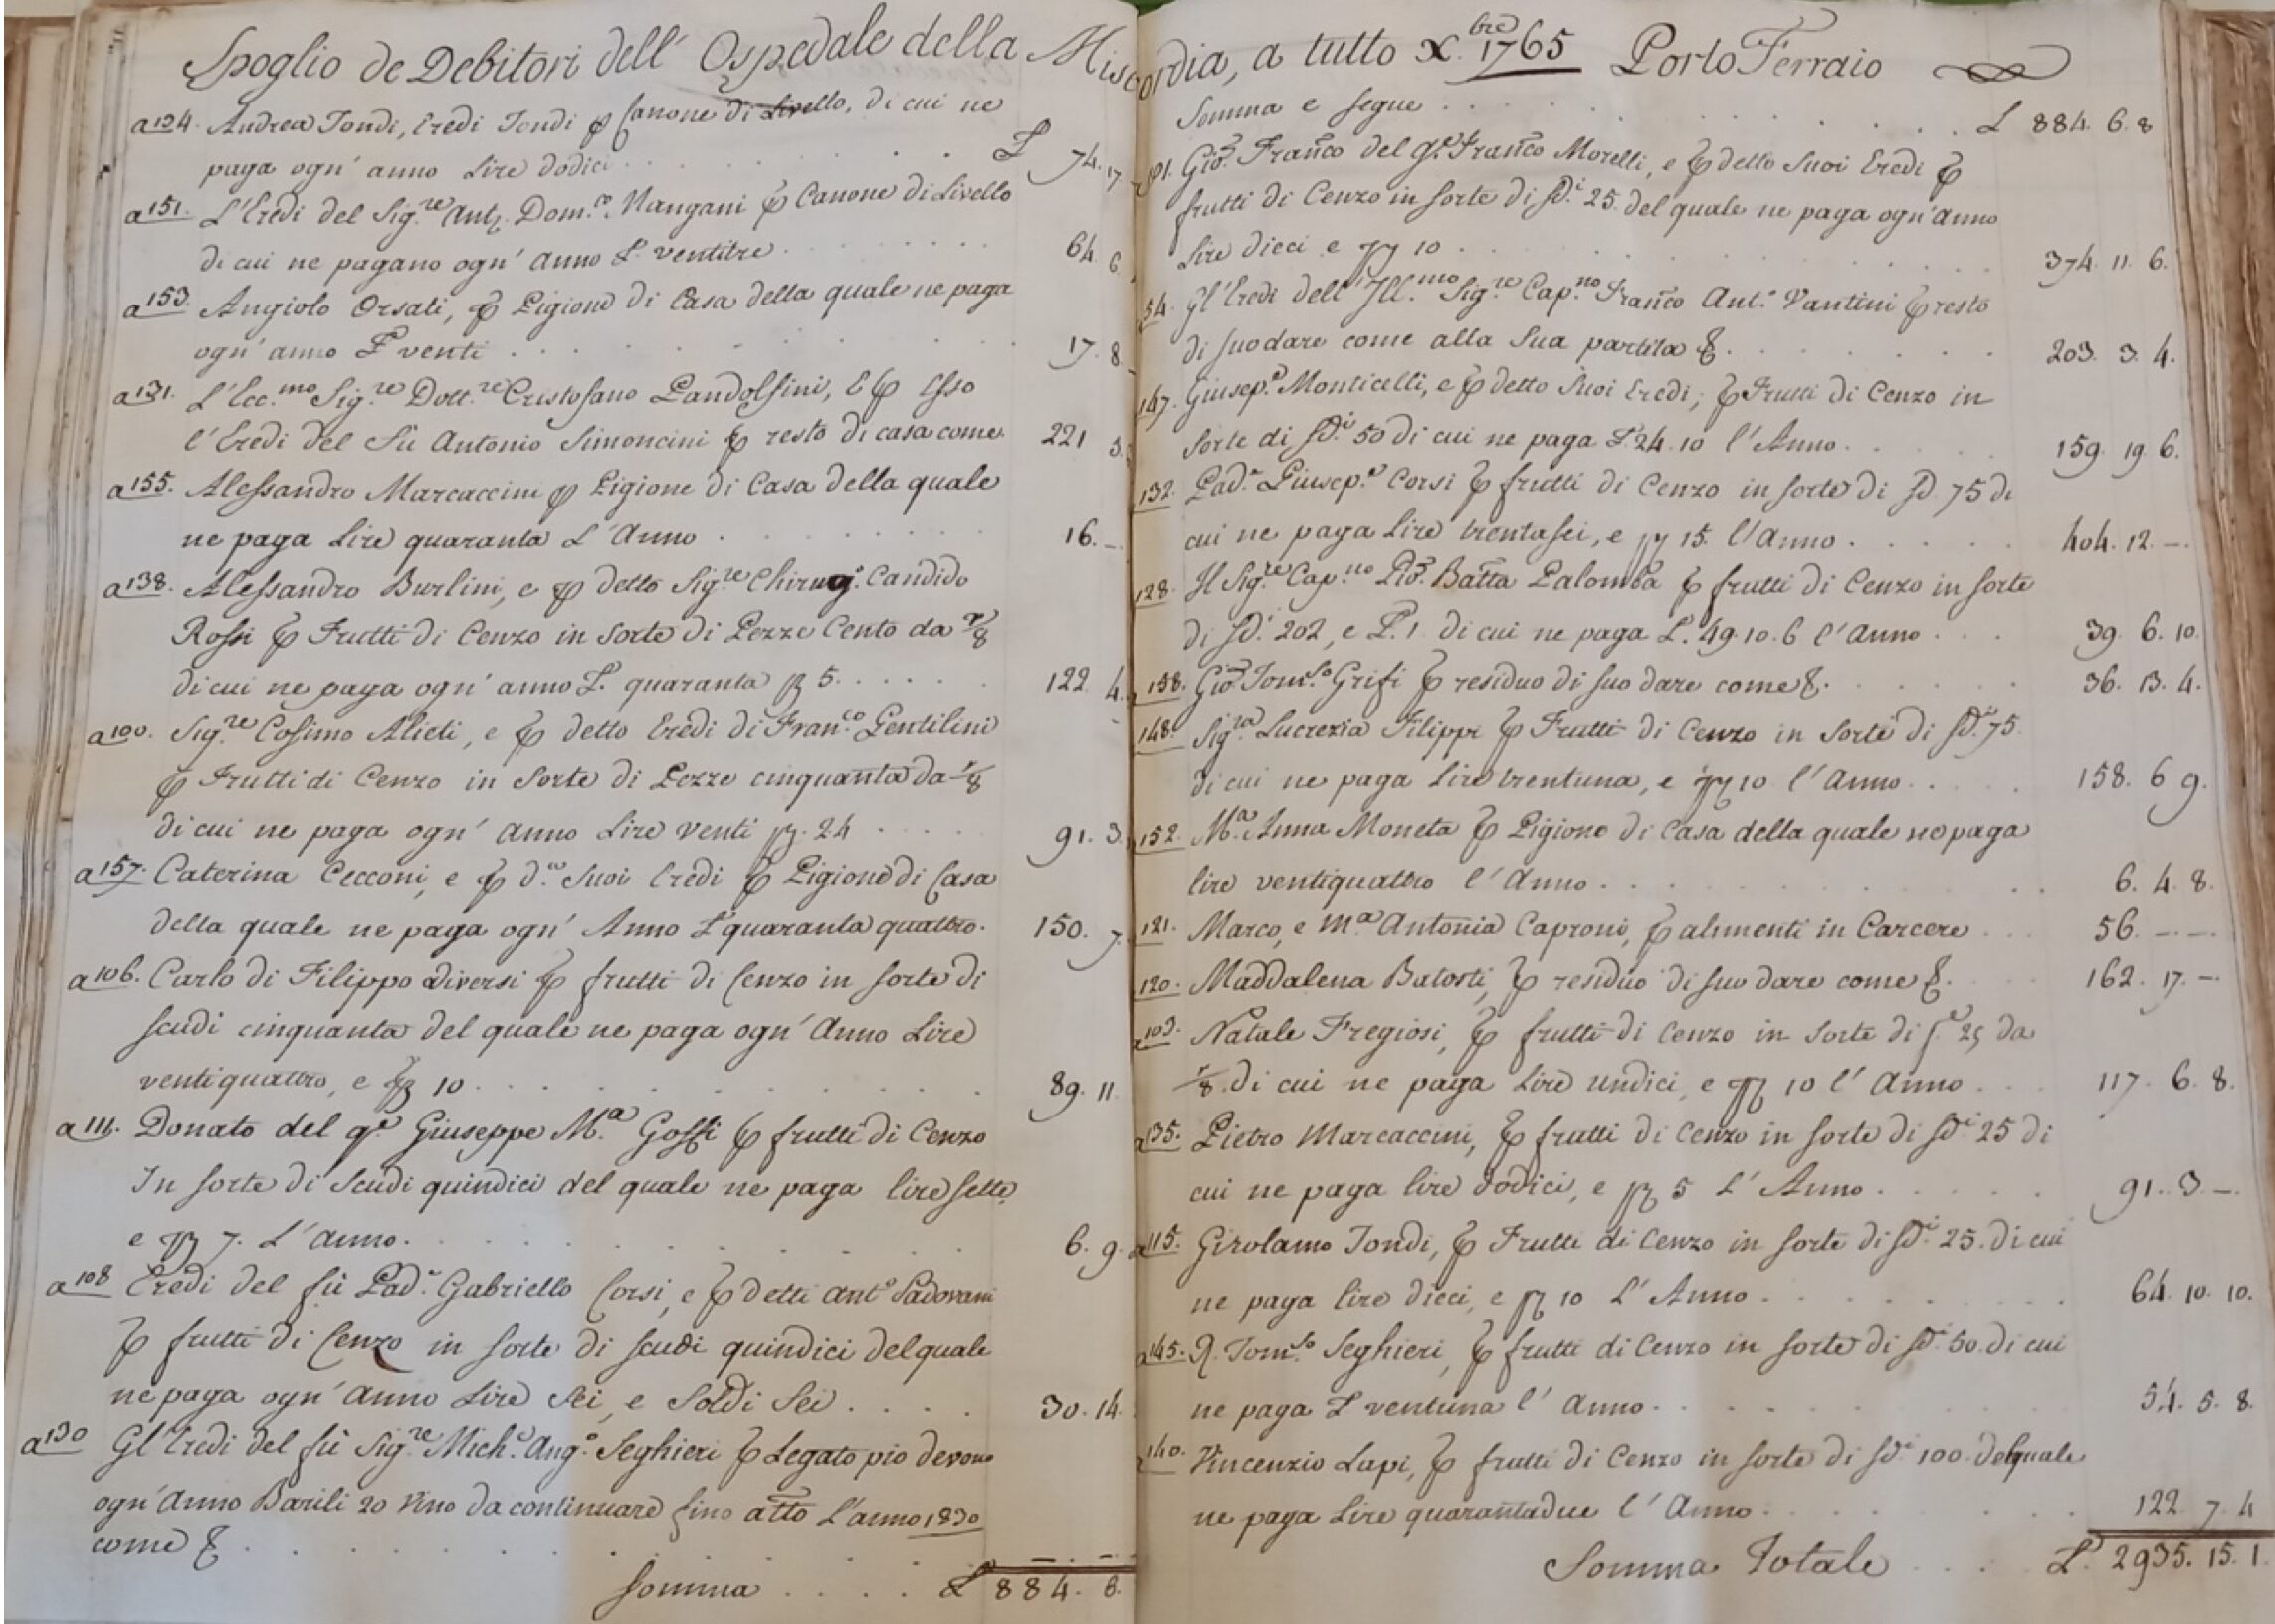 Spoglio de Debitori dell' Ospedale della Miscordia, a tutto X.bre 1765 Porto Ferraio
a 134. Andrea Tondi, Eredi Tondi p Canone di Livello, di cui ne
paga ogn' anno Lire dodici . . . L 74. 17
a 151. L'Eredi del Sig.re Ant. Dom.co Mangani p Canone di Livello
di cui ne pagano ogn' Anno L. ventitre . . . 64. 6.
a 153. Angiolo Orsati, p Pigione di Casa della quale ne paga
ogn' anno L venti . . . 17. 8.
a 131. L'Ecc.mo Sig.re Dott.re Cristofano Pandolfini, e p Esso
l'Eredi del fù Antonio Simoncini p resto di casa come 221 3.
a 155. Alessandro Marcaccini p Pigione di Casa della quale
ne paga Lire quaranta L'Anno . . . 16. –
a 138. Alessandro Burlini, e p detto Sig.re Chirug.o Candido
Rossi p Frutti di Cenzo in Sorte di Pezze Cento da r/8
di cui ne paga ogn' anno L. quaranta 5 . . . 122 4.
a 100. Sig.re Cosimo Alieti, e p detto Eredi di Fran.co Gentilini
p Frutti di Cenzo in Sorte di Pezze cinquanta da r/8
di cui ne paga ogn' Anno Lire venti 24 . . . 91. 3.
a 157. Caterina Cecconi, e p d.a Suoi Eredi p Pigione di Casa
della quale ne paga ogn' Anno L quaranta quattro. 150. 7.
a 106. Carlo di Filippo Diversi p frutti di Cenzo in sorte di
scudi cinquanta del quale ne paga ogn' Anno Lire
ventiquattro, e 10 . . . 89. 11
a 111. Donato del q.e Giuseppe M.a Goffi p frutti di Cenzo
In sorte di Scudi quindici del quale ne paga lire sette,
e 7. L'Anno . . . 6. 9.
a 108 Eredi del fù Pad.e Gabriello Corsi, e p detti Ant.o Padovani
p frutti di Cenzo in sorte di scudi quindici del quale
ne paga ogn' Anno Lire Sei, e Soldi Sei . . . 30. 14.
a 130 Gl'Eredi del fù Sig.re Mich.e Ang.o Seghieri p Legato pio devono
ogn' Anno Barili 20 Vino da continuare fino atto L'anno 1830
come . . . –. –.
Somma . . . L 884. 6.
Somma e segue . . . L 884. 6. 8
101. Gio. Franco del q.e Franco Morelli, e p detto Suoi Eredi p
frutti di Cenzo in sorte di sd.i 25. del quale ne paga ogn' anno
Lire dieci e 10 . . . 374. 11. 6.
54. Gl'Eredi dell' Ill.mo Sig.re Cap.no Franco Ant.o Vantini p resto
di suo dare come alla Sua partita . . . 203. 3. 4.
147. Giusep.e Monticelli, e p detto Suoi Eredi; p Frutti di Cenzo in
sorte di sd.i 50 di cui ne paga L 24. 10 l'Anno . . . 159. 19. 6.
132. Pad.e Giusep.e Corsi p frutti di Cenzo in sorte di sd. 75 di
cui ne paga Lire trentasei, e 15. l'Anno . . . 404. 12. –.
128. Il Sig.re Cap.no Gio. Batta Palomba p frutti di Cenzo in sorte
di sd.i 202, e P. 1. di cui ne paga L. 49. 10. 6 l'Anno . . . 39. 6. 10.
158. Gio Tom.so Grifi p residuo di suo dare come . . . 36. 13. 4.
148. Sig.ra Lucrezia Filippi p Frutti di Cenzo in Sorte di sd.i 75.
di cui ne paga Lire trentuna, e 10 l'Anno . . . 158. 6 9.
152. M.a Anna Moneta p Pigione di Casa della quale ne paga
lire ventiquattro l'Anno . . . 6. 4. 8.
121. Marco, e M.a Antonia Caproni, p alimenti in Carcere . . . 56. –. –.
120. Maddalena Batosti, p residuo di suo dare come . . . 162. 17. –.
a 103. Natale Fregiosi, p frutti di Cenzo in Sorte di 25 da
r/8. di cui ne paga Lire undici, e 10 l'Anno . . . 117. 6. 8.
a 135. Pietro Marcaccini, p frutti di Cenzo in sorte di sd.i 25 di
cui ne paga lire dodici, e 5 L'Anno . . . 91. 3. –.
a 115. Girolamo Tondi, p Frutti di Cenzo in sorte di sd.i 25. di cui
ne paga lire dieci, e 10 L'Anno . . . 64. 10. 10.
a 145. Tom.so Seghieri, p frutti di Cenzo in sorte di sd.i 50. di cui
ne paga L ventuna l'Anno . . . 54. 5. 8.
a 140. Vincenzio Lapi, p frutti di Cenzo in sorte di sd.i 100. del quale
ne paga Lire quarantadue l'Anno . . . 122 7. 4
Somma Totale . . . L. 2935. 15. 1.